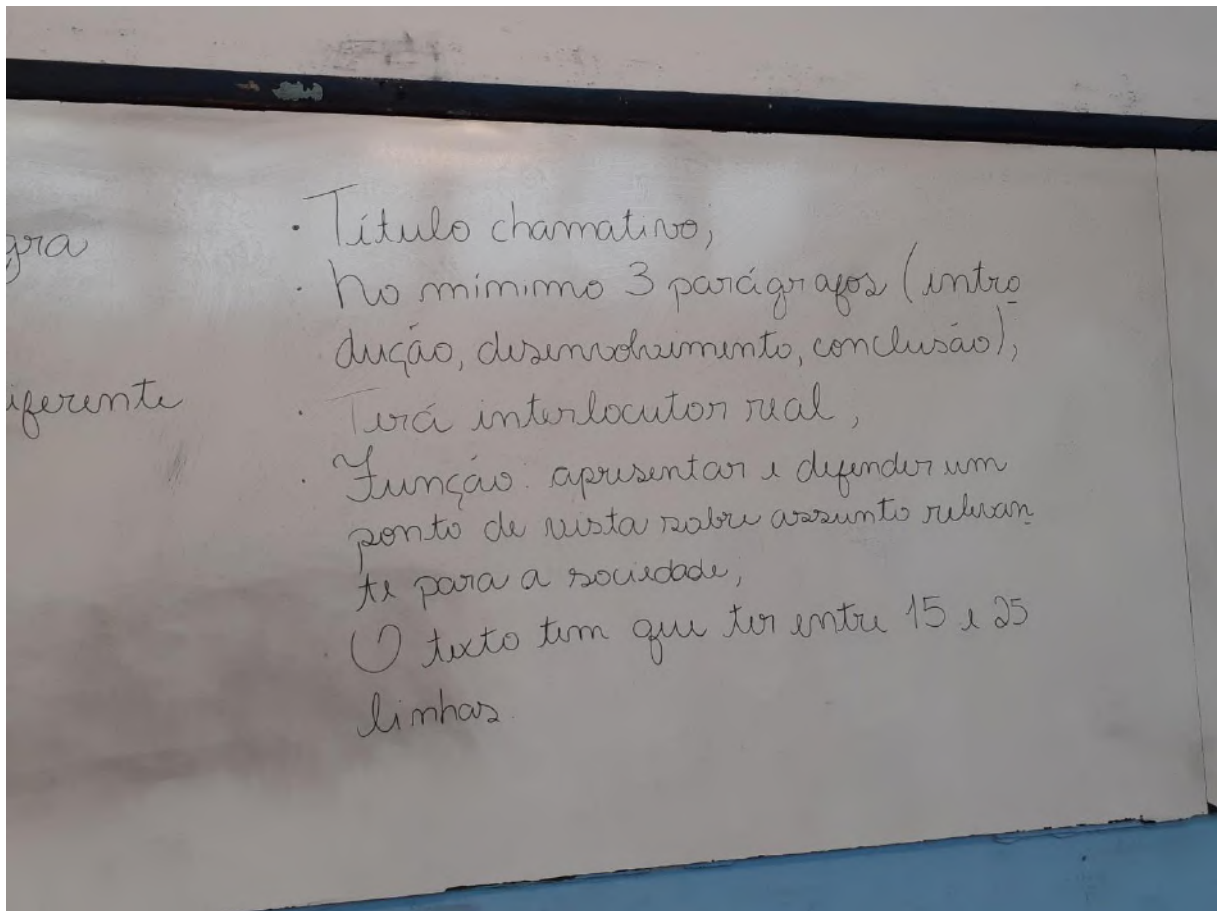 gra
iferente
· Título chamativo;
· No mínimo 3 parágrafos (intro
dução, desenvolvimento, conclusão);
· Terá interlocutor real;
· Função: apresentar e defender um
ponto de vista sobre assunto relevan
te para a sociedade;
O texto tem que ter entre 15 e 25
linhas.